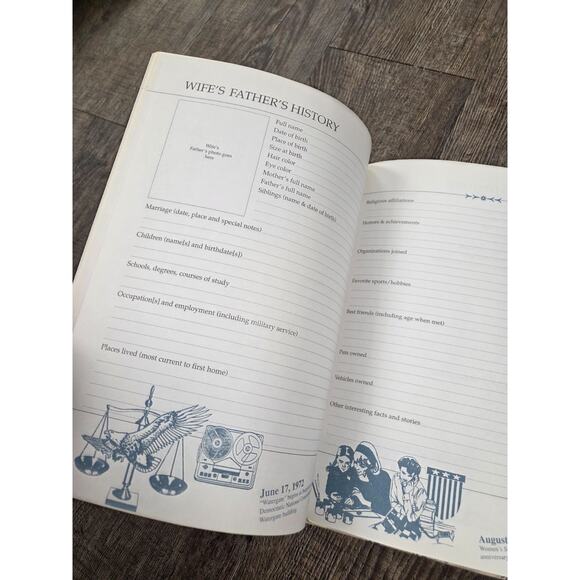 WIFE'S FATHER'S HISTORY
Wife's
Father's photo goes
here
Full name
Date of birth
Place of birth
Size at birth
Hair color
Eye color
Mother's full name
Father's full name
Siblings (name & date of birth)
Marriage (date, place and special notes)
Children (name[s] and birthdate[s])
Schools, degrees, courses of study
Occupation[s] and employment (including military service)
Places lived (most current to first home)
June 17, 1972
"Watergate" begins at
Democratic National
Watergate building.
Religious affiliations
Honors & achievements
Organizations joined
Favorite sports/hobbies
Best friends (including age when met)
Pets owned
Vehicles owned
Other interesting facts and stories
August
Women's
anniversary